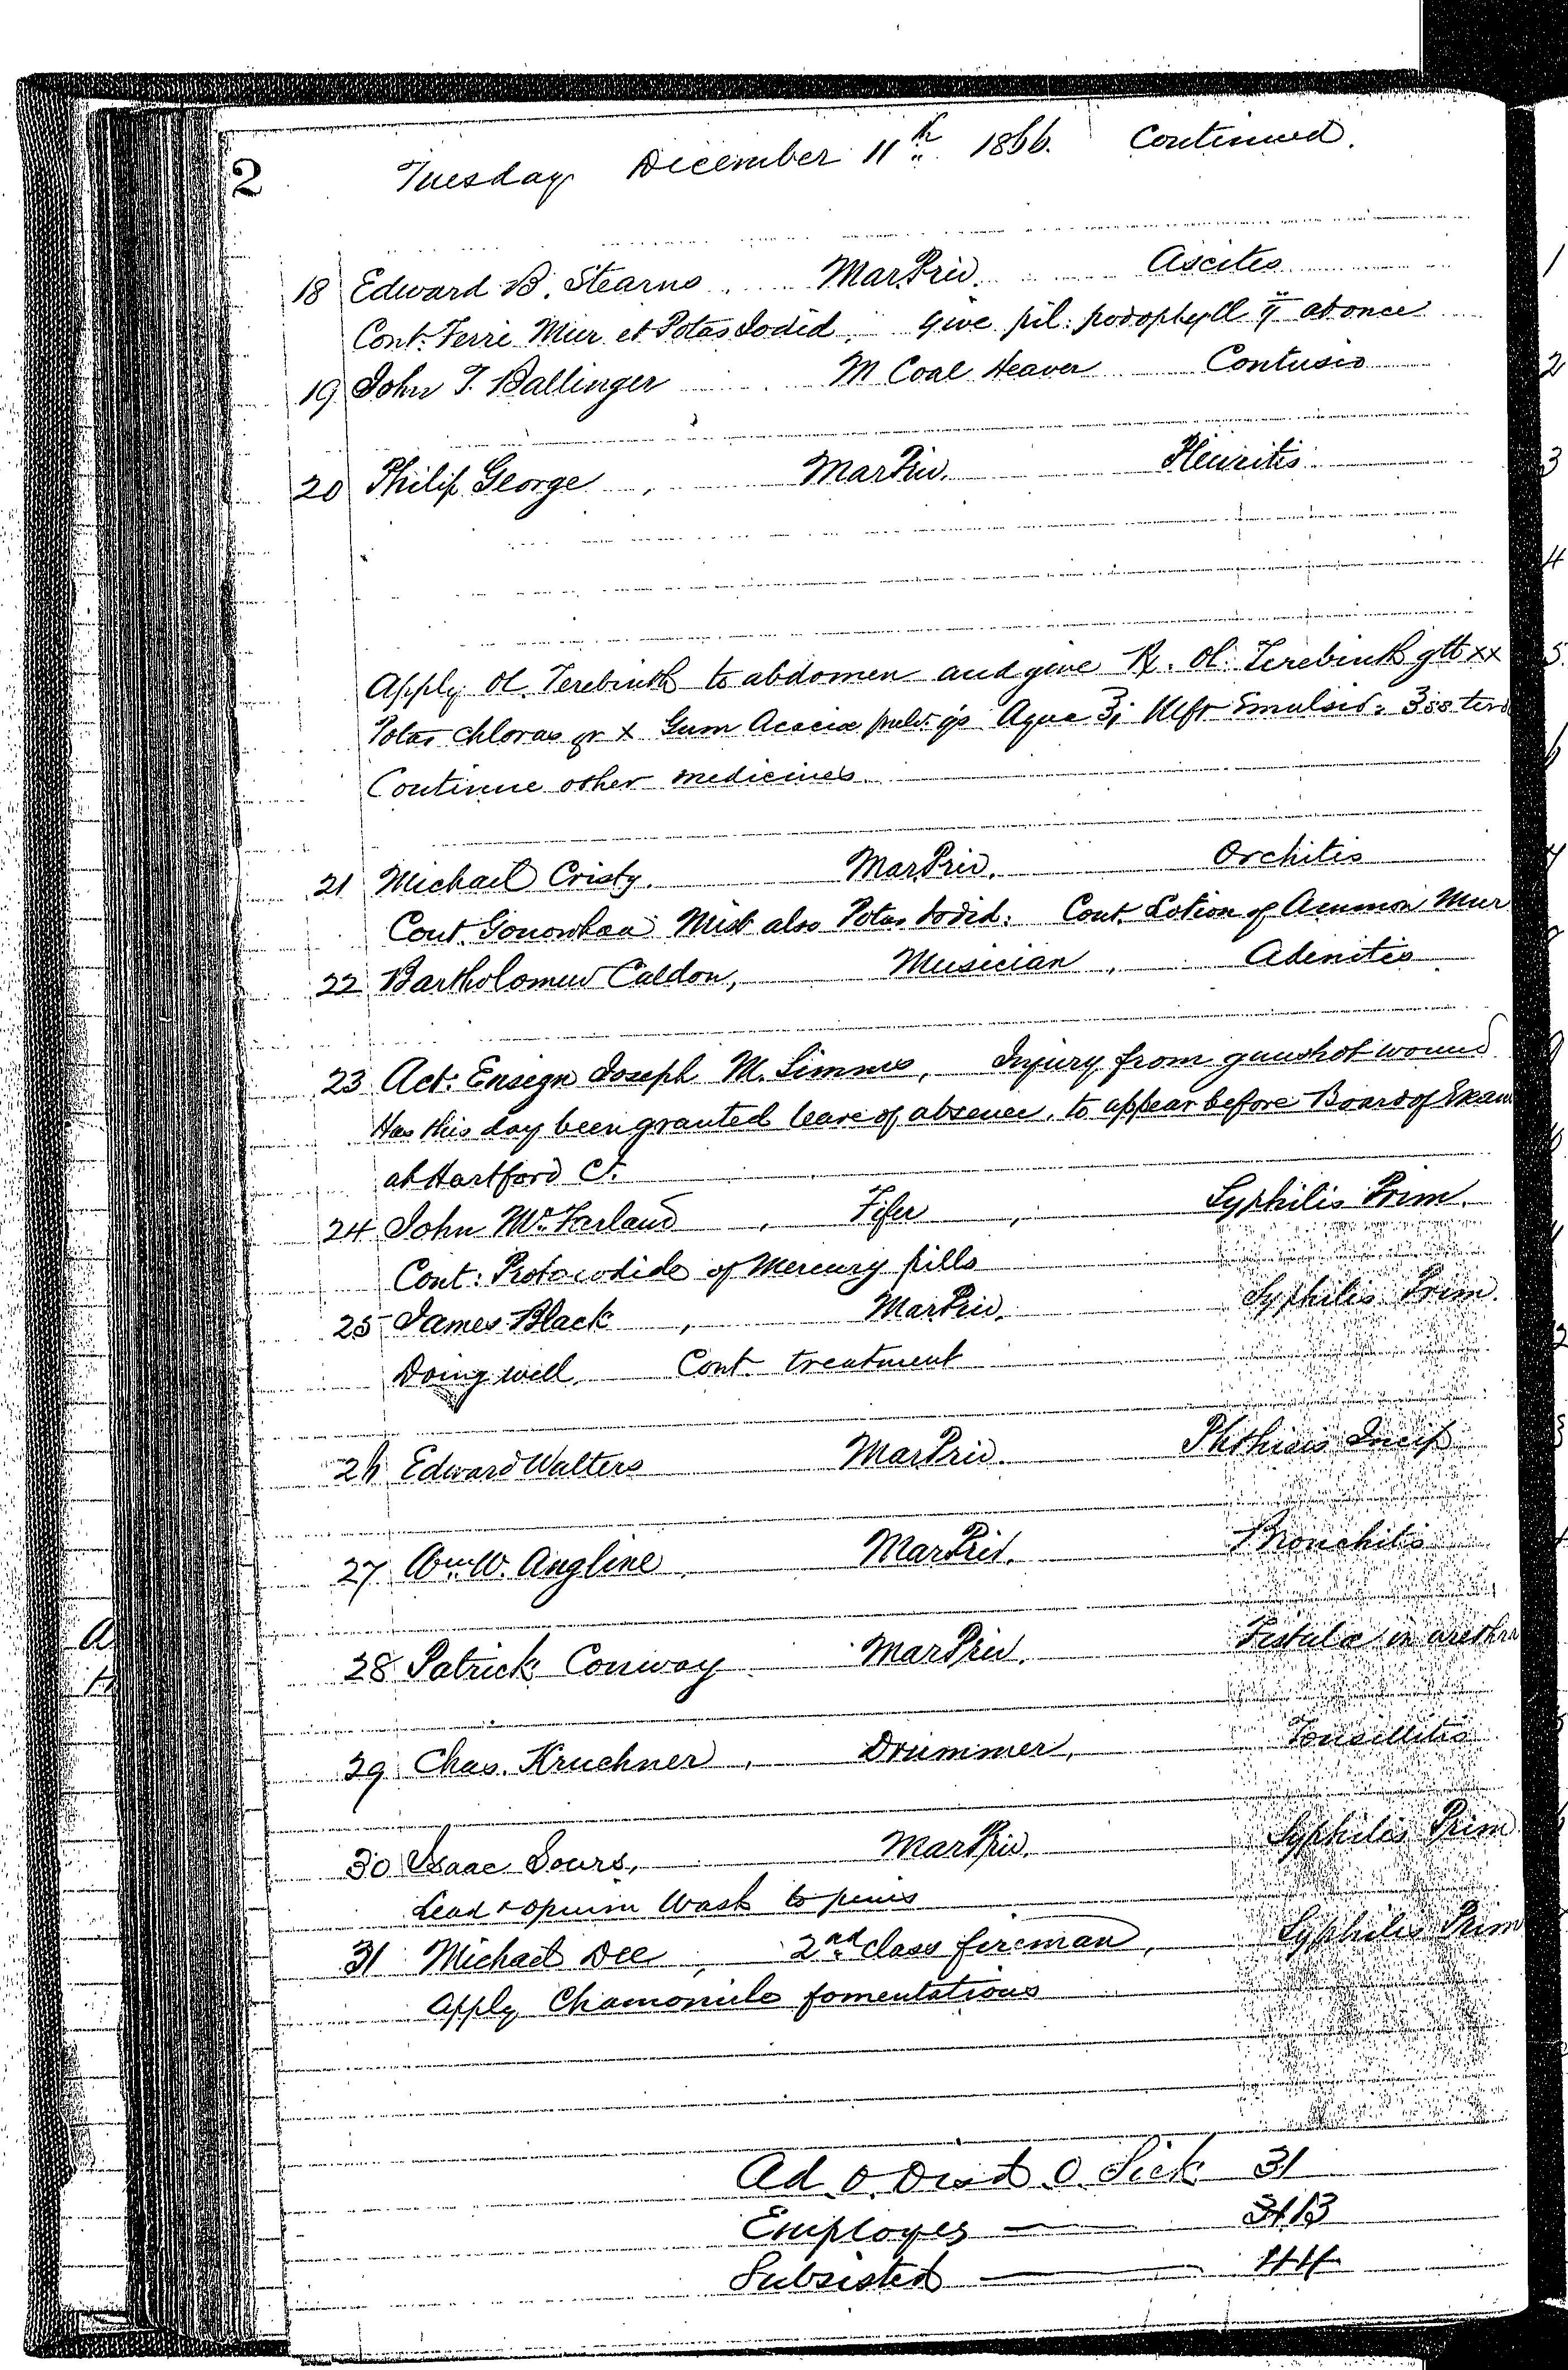 2
Tuesday December 11th 1866. Continued.
18 Edward B. Stearns, Mar. Priv. Ascites
Cont. Ferri Mur. et Potas Iodid, Give pil: podophyll ij at once
19 John T. Ballinger M Coal Heaver Contusio
20 Philip George, Mar Priv. Pleuritis
Apply Ol. Terebinth to abdomen and give R. Ol. Terebinth gtt xx
Potas chloras gr x Gum Acacia pulv. qs Aqua ℥j Mft Emulsio. ℥ss
Continue other medicines.
21 Michael Cristy. Mar. Priv. Orchitis
Cont. Gonorrhoea Mist also Potas Iodid: Cont. Lotion of Ammon Mur
22 Bartholomew Caldon, Musician, Adenitis
23 Act: Ensign Joseph M. Simms, Injury from gunshot wound
Has this day been granted leave of absence, to appear before Board of Exam
at Hartford Ct.
24 John McFarland, Fifer, Syphilis Prim.
Cont: Protoiodide of Mercury pills
25 James Black, Mar Priv. Syphilis Prim.
Doing well. Cont. treatment
26 Edward Walters Mar Priv. Phthisis Incip
27 Wm. W. Angline, Mar Priv. Bronchitis
28 Patrick Conway Mar Priv. Fistula in urethra
29 Chas. Kruchner, Drummer, Tonsillitis
30 Isaac Sours, Mar Priv. Syphilis Prim
Lead & opium Wash to penis
31 Michael Dee, 2nd class fireman, Syphilis Prim
Apply Chamomile fomentations
Ad. 0. Disd. 0. Sick 31
Employes — 13
Subsisted — 44